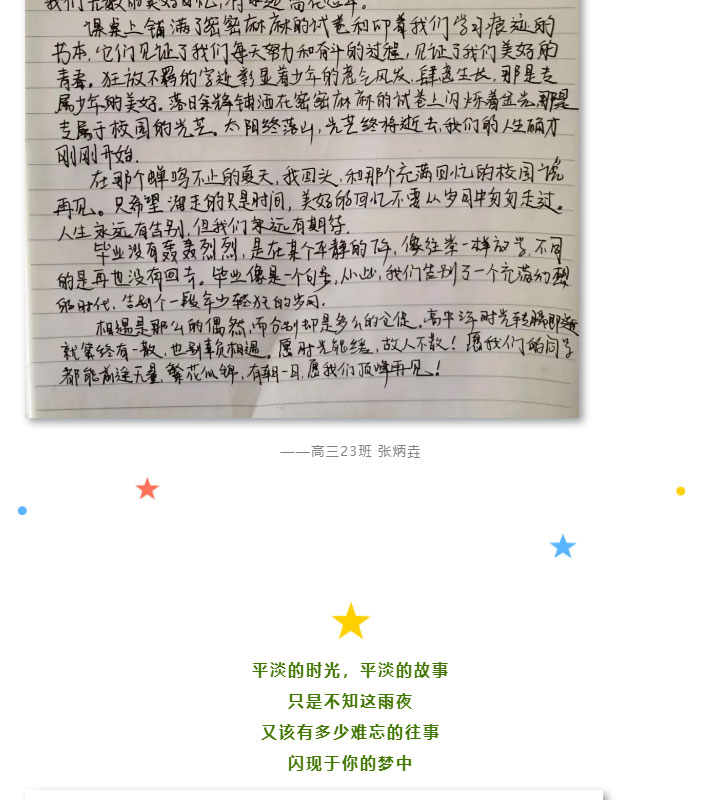 我们无数的美好回忆,
课桌上铺满了密密麻麻的试卷和印着我们学习痕迹的
书本,它们见证了我们每天努力和奋斗的过程,见证了我们美好的
青春。狂放不羁的字迹彰显着少年的意气风发,肆意生长,那是专
属少年的美好。落日余晖铺洒在密密麻麻的试卷上闪烁着金光,那是
专属于校园的光芒。太阳终落山,光芒终将逝去,我们的人生确才
刚刚开始.
在那个蝉鸣不止的夏天,我回头,和那个充满回忆的校园说
再见。只希望溜走的只是时间,美好的回忆不要从岁月中匆匆走过。
人生永远有告别,但我们永远有期待.
毕业没有轰轰烈烈,是在某个平静的下午,像往常一样放学,不同
的是再也没有回去。毕业像是一个句号,从此,我们告别了一个充满幻想
的时代,告别个一段年少轻狂的岁月.
相遇是那么的偶然,而分别却是多么的仓促。高中三年时光转瞬即逝
就算终有一散,也别辜负相遇。愿时光能缓,故人不散!愿我们的同学
都能前途无量,繁花似锦,有朝一日,愿我们顶峰再见!
——高三23班 张炳垚
平淡的时光，平淡的故事
只是不知这雨夜
又该有多少难忘的往事
闪现于你的梦中